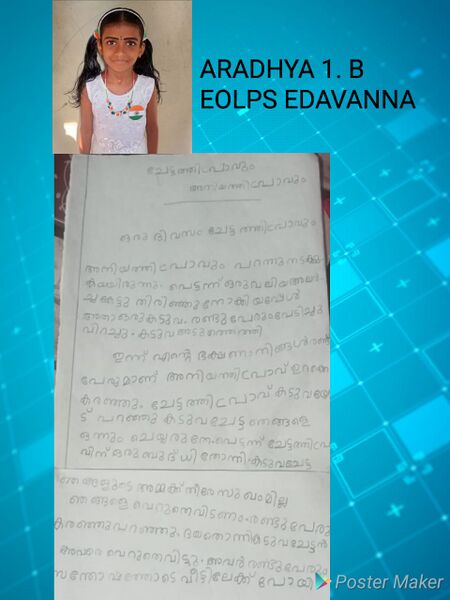 ARADHYA 1. B
EOLPS EDAVANNA
ചേട്ടത്തിപ്രാവും
അനിയത്തിപ്രാവും
ഒരു ദിവസം ചേട്ടത്തിപ്രാവും
അനിയത്തിപ്രാവും പറന്നുനടക്കു
കയായിരുന്നു. പെട്ടന്ന് ഒരുവലിയഅലർ
ച്ചകേട്ടു തിരിഞ്ഞുനോക്കിയപ്പോൾ
അതാഒരുകടുവ. രണ്ടുപേരുംപേടിച്ചു
വിറച്ചു. കടുവഅടുത്തെത്തി
ഇന്ന് എന്റെ ഭക്ഷണംനിങ്ങൾരണ്ട്
പേരുമാണ് അനിയത്തിപ്രാവ് ഉറക്കെ
കരഞ്ഞു. ചേട്ടത്തിപ്രാവ് കടുവയോ
ട് പറഞ്ഞു കടുവച്ചേട്ടാ ഞങ്ങളെ
ഒന്നും ചെയ്യരുതേ. പെട്ടന്ന് ചേട്ടത്തിപ്രാ
വിന് ഒരുബുദ്ധി തോന്നി. കടുവച്ചേട്ടാ
ഞങ്ങളുടെ അമ്മക്ക് തീരെ സുഖംമില്ല
ഞങ്ങളെ വെറുതെവിടണം. രണ്ടുപേരു
കരഞ്ഞുപറഞ്ഞു. ദയതോന്നികടുവചേട്ടൻ
അവരെ വെറുതെവിട്ടു. അവർ രണ്ടുപേരും
സന്തോഷത്തോടെ വീട്ടിലേക്ക് പോയി
Poster Maker